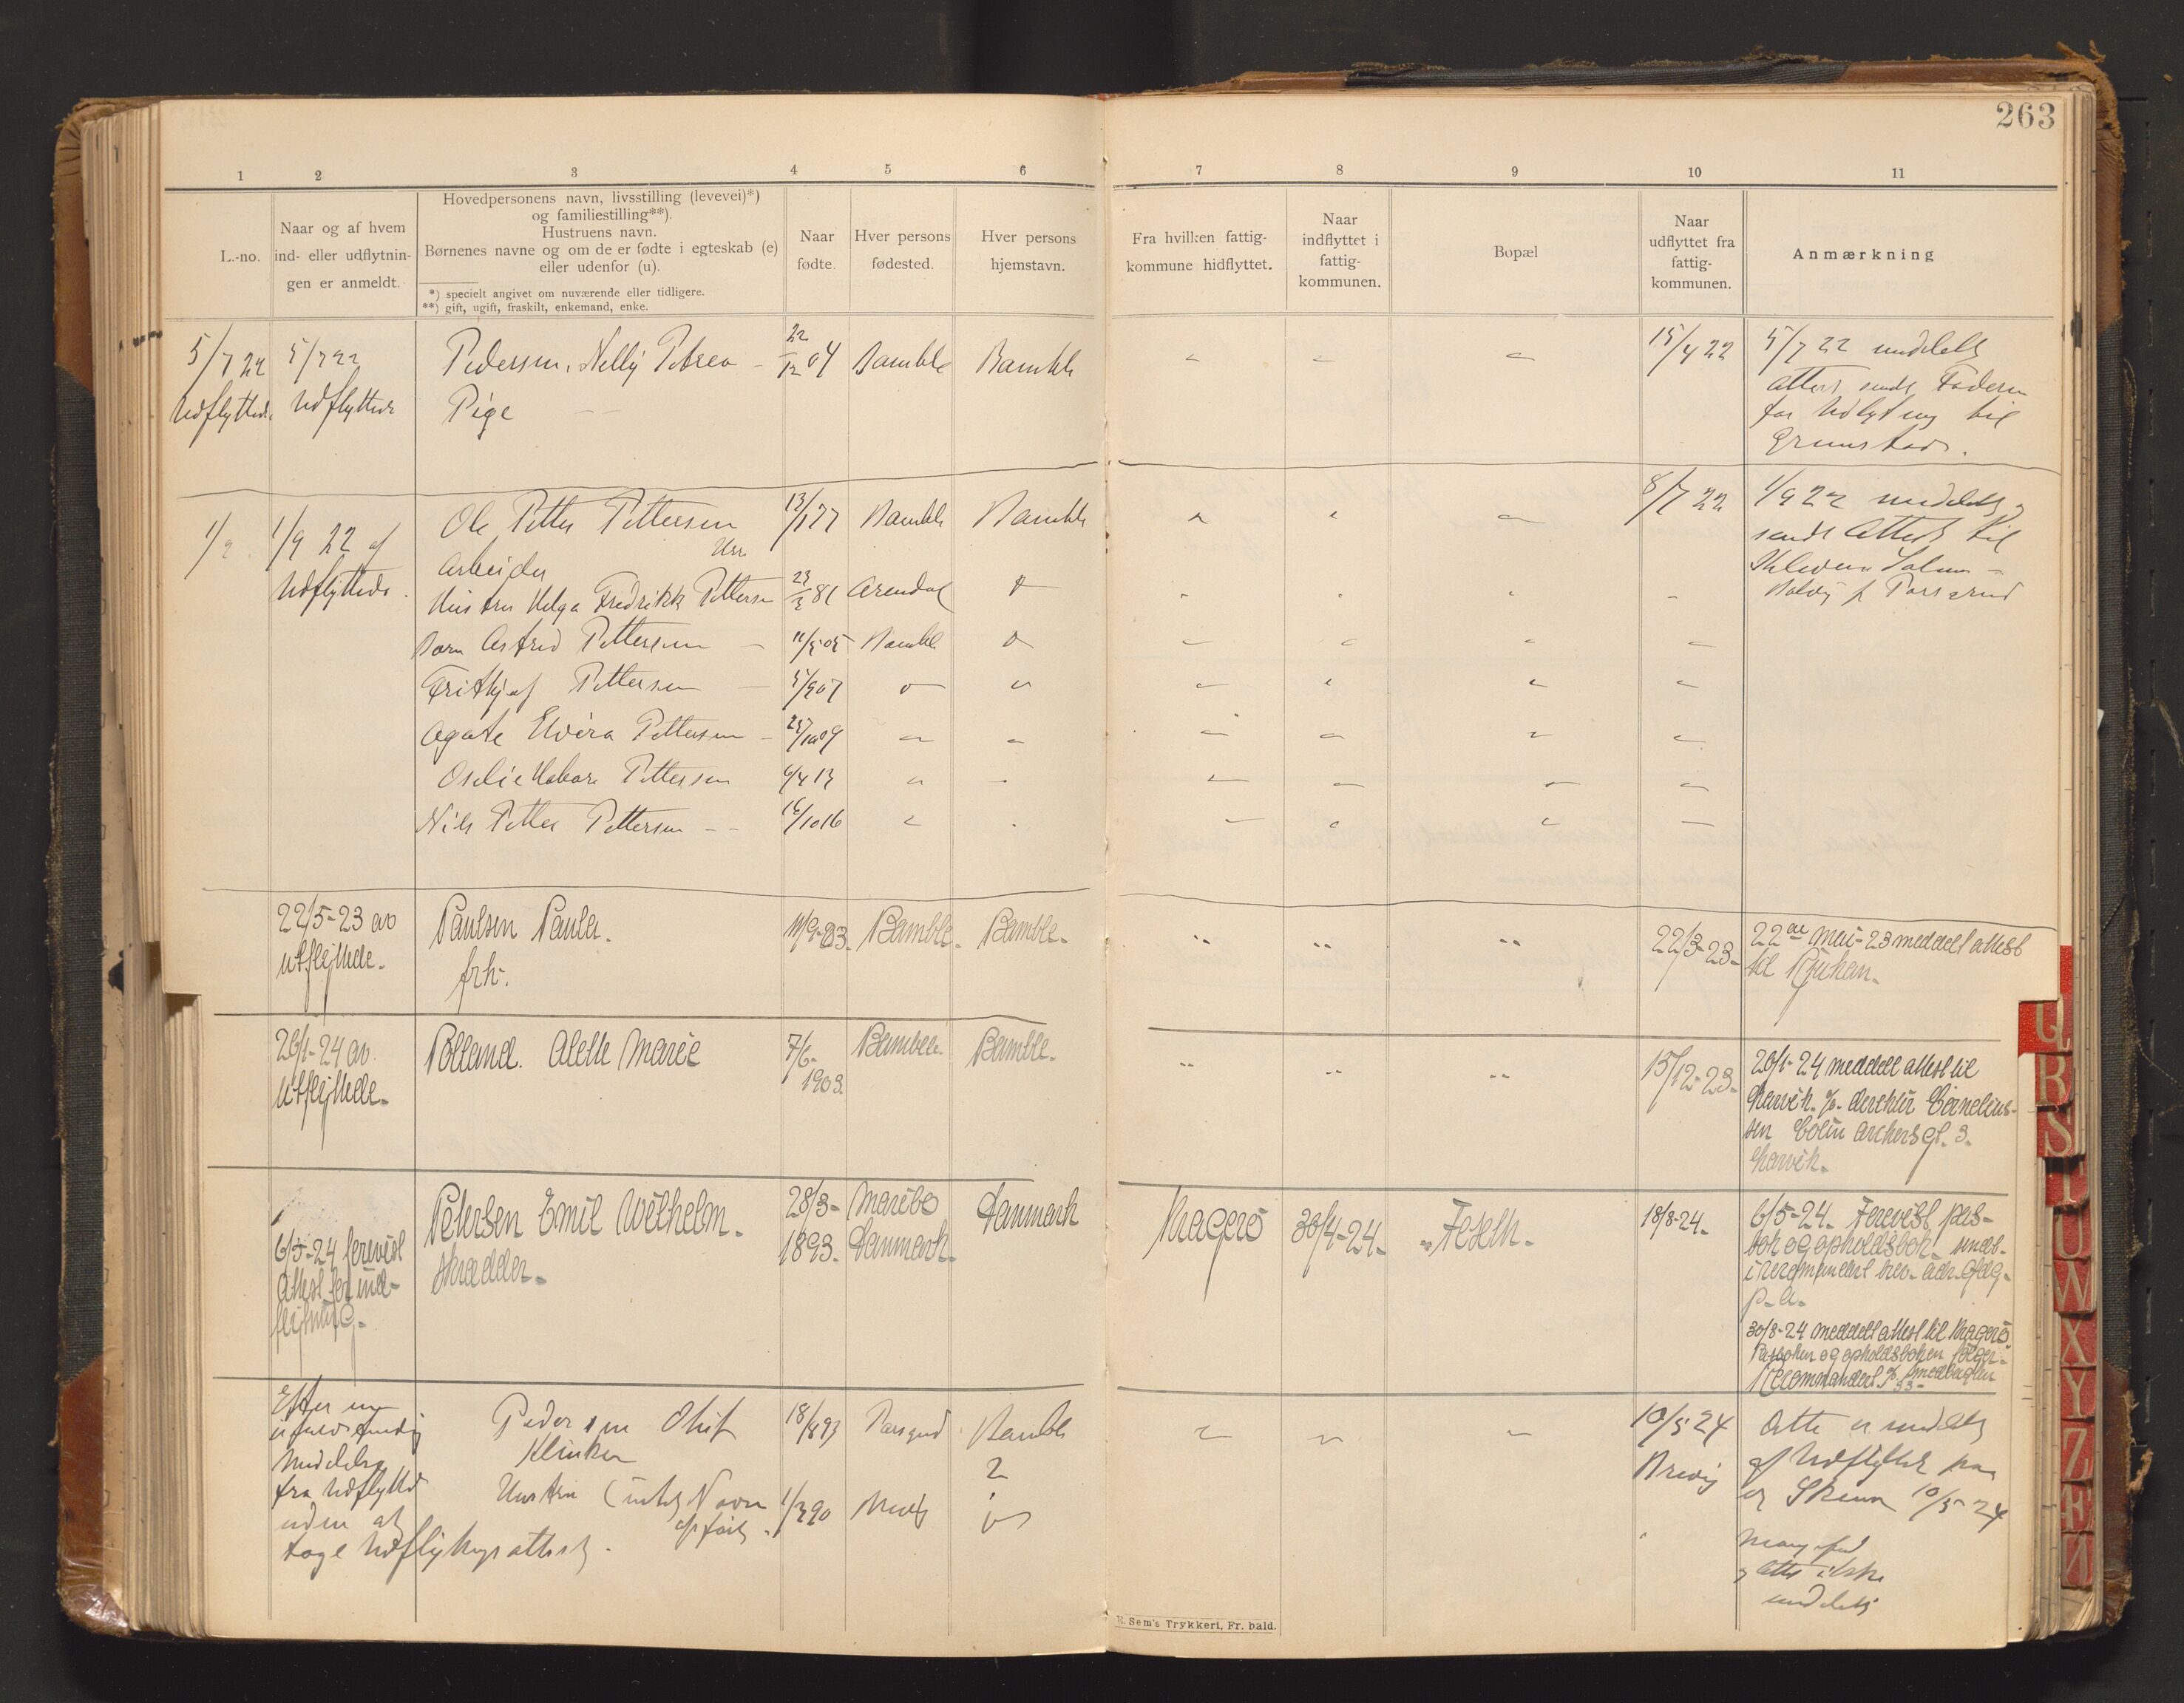 263
1 2 3 4 5 6 7 8 9 10 11
L.-no.
Naar og af hvem
ind- eller udflytnin-
gen er anmeldt.
Hovedpersonens navn, livsstilling (levevei)*)
og familiestilling**).
Hustruens navn.
Børnenes navne og om de er fødte i egteskab (e)
eller udenfor (u).
*) specielt angivet om nuværende eller tidligere.
**) gift, ugift, fraskilt, enkemand, enke.
Naar
fødte.
Hver persons
fødested.
Hver persons
hjemstavn.
Fra hvilken fattig-
kommune hidflyttet.
Naar
indflyttet i
fattig-
kommunen.
Bopæl
Naar
udflyttet fra
fattig-
kommunen.
Anmærkning
5/7 22
Udflyttede
5/7 22
Udflyttede
Pedersen, Nelly Petrea
Pige
22/12 04
Bamble
Bamble
15/4 22
5/7 22 meddelt
Attest sendt Faderen
for Udflytning til
Grimstad.
1/9
1/9 22 af
Udflyttede.
Ole Petter Pettersen
Arbeider
13/1 77
Bamble
Bamble
8/7 22
1/9 22 meddelt
sendt Attest til
Hustru Helga Fredrikke Pettersen
23/3 81
Arendal
Barn Astrid Pettersen
11/5 05
Bamble
Fritkjof Pettersen
5/9 07
Agate Elvira Pettersen
Pettersen
6/4 13
Nils Petter Pettersen
16/10 16
22/5-23 av
utflyttede.
Paulsen Paula.
frk.
Bamble.
Bamble.
22/3-23.
22de mai-23 meddelt attest
til Rjukan.
26/1-24 av.
utflyttede.
Polland. Alette Marie
7/6-
1903.
Bamble.
Bamble.
15/12-23.
26/1-24 meddelt attest til
Larvik. %. direktør Cornelius-
sen Colin Archersgt. 3.
Larvik.
6/5-24 forevist
Attest for ind-
flytning.
Petersen Emil Wilhelm.
skrædder.
28/3-
1893.
Maribo
Danmark.
Danmark
Kragerø
30/4-24.
18/8-24.
6/5-24. Forevist pas-
bok og opholdsbok. sendt.
i recomandert brev.
30/8-24 meddelt attest til Kragerø
Pasboken og opholdsboken følger.
Recommandert
Efter en
Meddelelse
fra Udflyttede
uden at
tage Udflytningsattest.
Pedersen Oluf
Klinken
Hustru (intet Navn
opført.
18/8 93
Bamble
1/3 90
Brevig
10/5 24
Brevig
Atte er meddelt
af Udflyttede
Skien 10/5 24
Attest ikke
meddelt
Q
R
S
T
U
W
X
Y
Z
Æ
Ø
E. Sem's Trykkeri, Fr. hald.